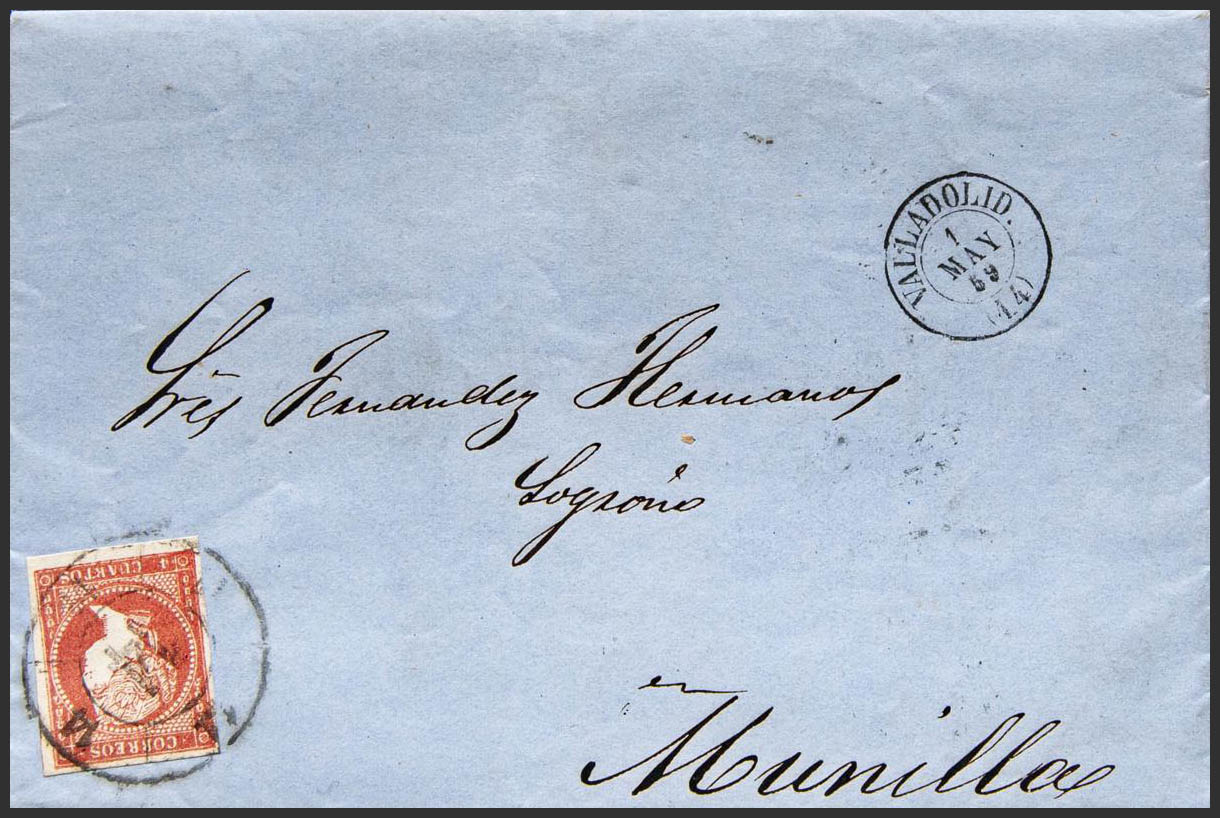 VALLADOLID.
1
MAY
59
(14)
Srēs Fernandez Hermanos
Logroño
en
Munilla
4 CUARTOS
CORREOS